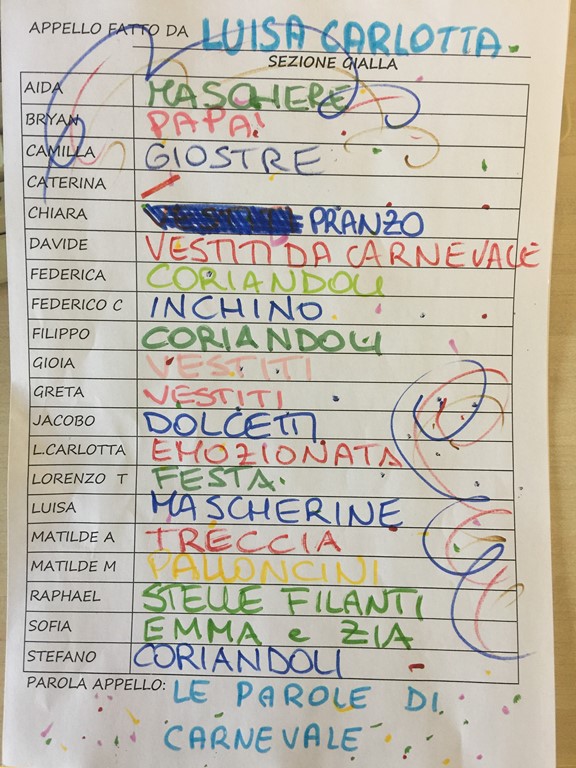 APPELLO FATTO DA LUISA CARLOTTA.
SEZIONE GIALLA
AIDA MASCHERE
BRYAN PAPA!
CAMILLA GIOSTRE
CATERINA
CHIARA PRANZO
DAVIDE VESTITI DA CARNEVALE
FEDERICA CORIANDOLI
FEDERICO C INCHINO
FILIPPO CORIANDOLI
GIOIA VESTITI
GRETA VESTITI
JACOBO DOLCETTI
L.CARLOTTA EMOZIONATA
LORENZO T FESTA.
LUISA MASCHERINE
MATILDE A TRECCIA
MATILDE M PALLONCINI
RAPHAEL STELLE FILANTI
SOFIA EMMA e ZIA
STEFANO CORIANDOLI
PAROLA APPELLO: LE PAROLE DI
CARNEVALE